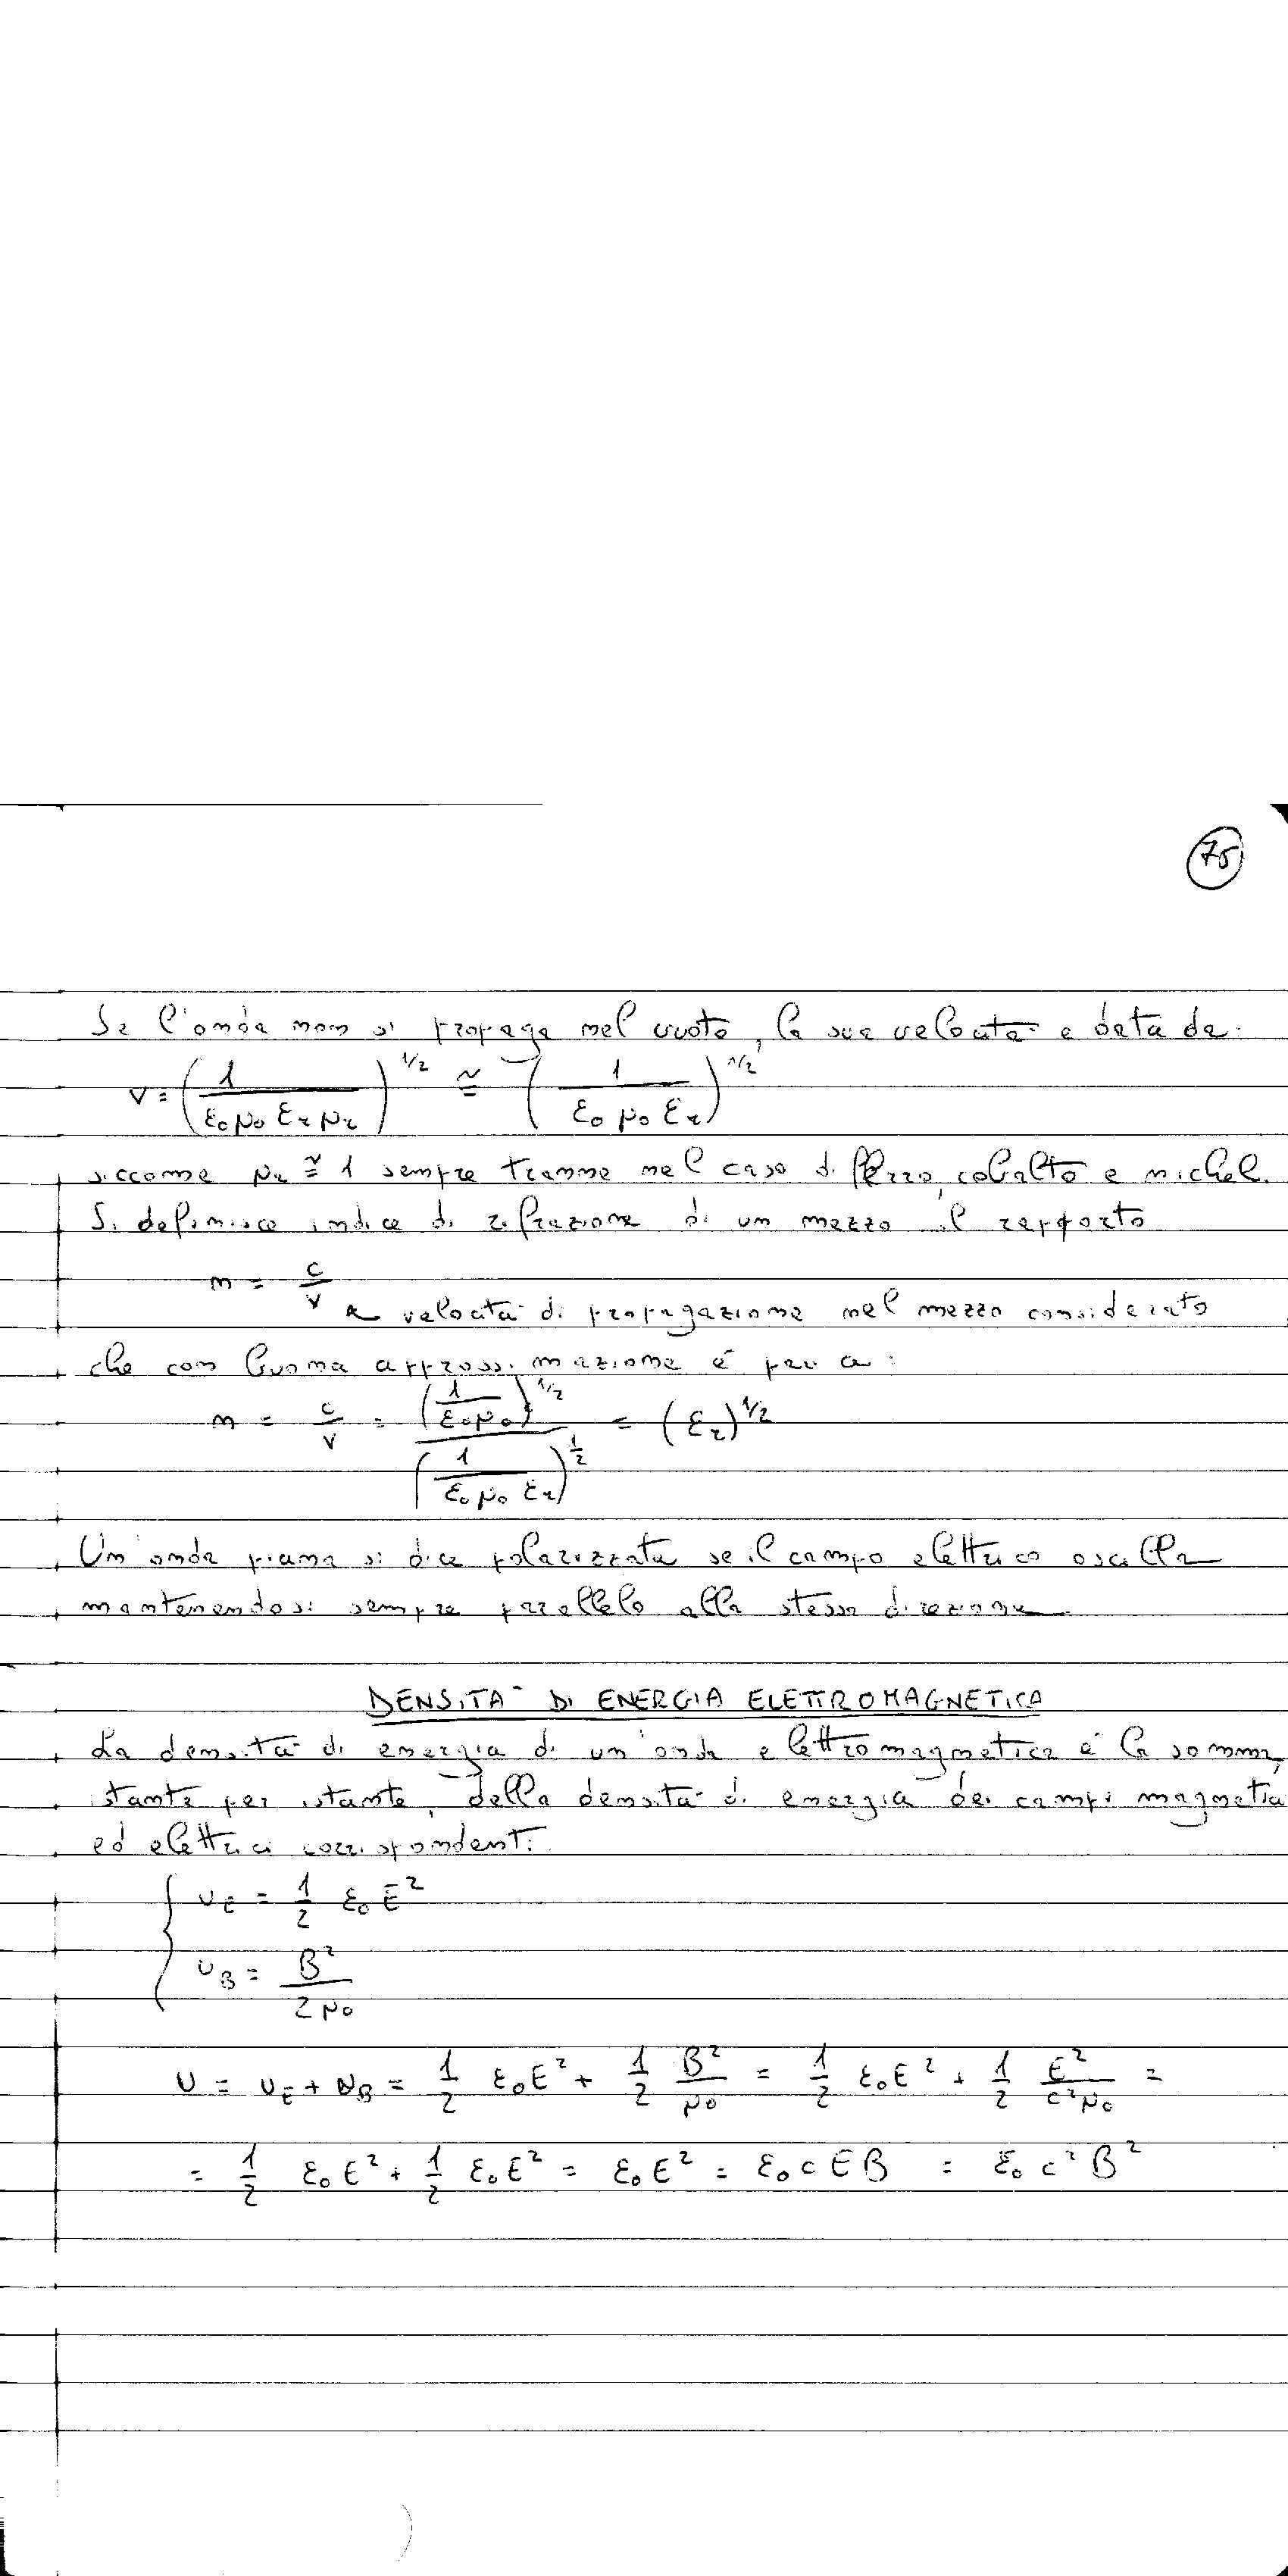 75
Se l'onda non si propaga nel vuoto, la sua velocità è data da:
v = (1 / (ε₀ μ₀ εr μr))^1/2 ≅ (1 / (ε₀ μ₀ εr))^1/2
siccome μr ≅ 1 sempre tranne nel caso di ferro, cobalto e nichel.
Si definisce indice di rifrazione di un mezzo il rapporto
n = c/v
velocità di propagazione nel mezzo considerato
che con buona approssimazione è pari a:
n = c/v = (1/(ε₀μ₀))^1/2 / (1/(ε₀ μ₀ εr))^1/2 = (εr)^1/2
Un'onda piana si dice polarizzata se il campo elettrico oscilla
mantenendosi sempre parallelo alla stessa direzione
DENSITA' DI ENERGIA ELETTROMAGNETICA
La densità di energia di un'onda elettromagnetica è la somma,
istante per istante, della densità di energia dei campi magnetici
ed elettrici corrispondenti:
uE = 1/2 ε₀ E²
uB = B² / 2μ₀
U = uE + uB = 1/2 ε₀E² + 1/2 B²/μ₀ = 1/2 ε₀E² + 1/2 E²/(c²μ₀) =
= 1/2 ε₀E² + 1/2 ε₀E² = ε₀E² = ε₀ c E B = ε₀ c² B²